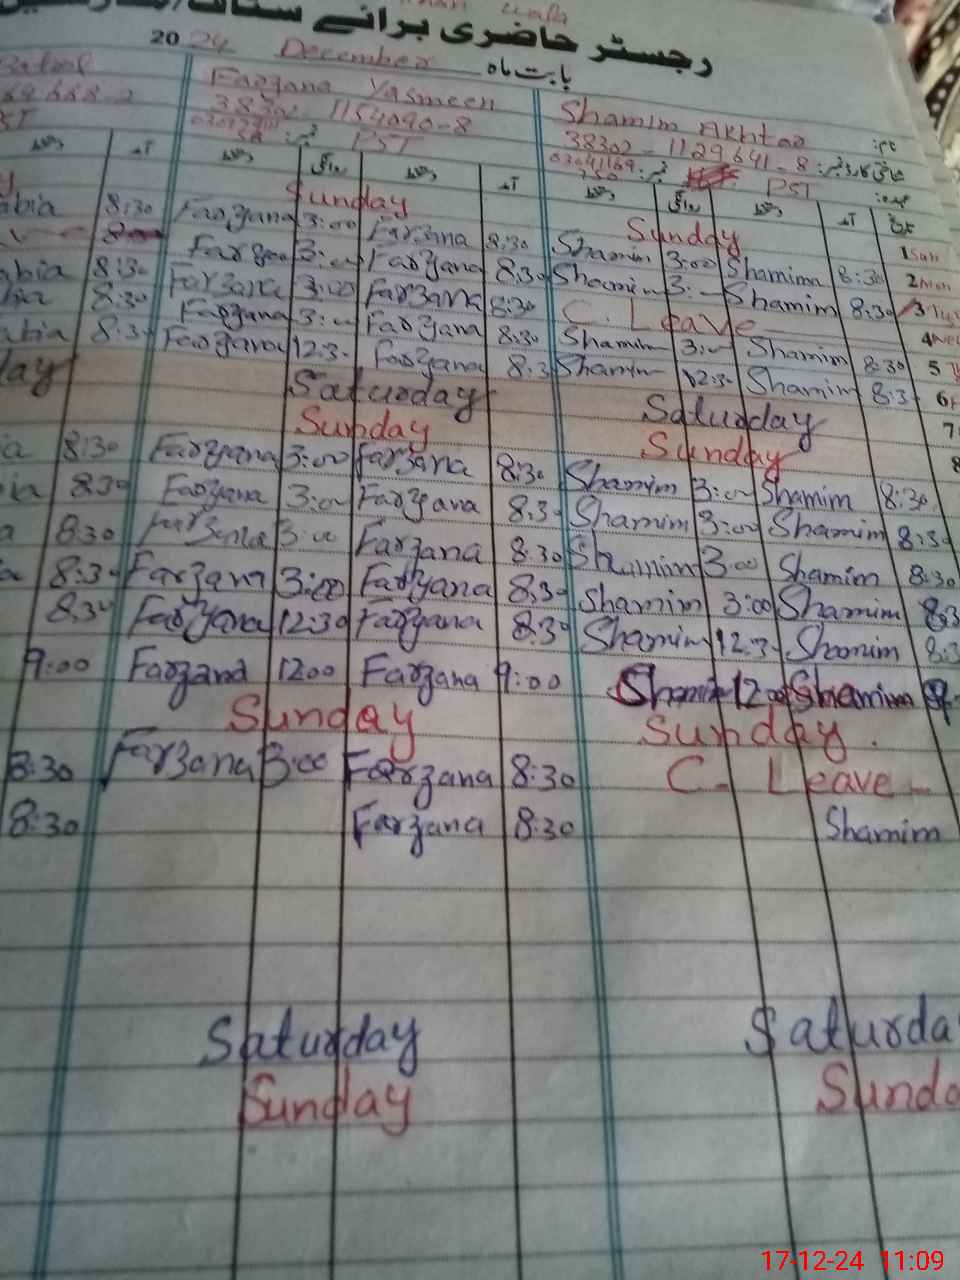 رجسٹر حاضری برائے سٹاف
2024 December بابت ماہ
Batool Farzana Yasmeen Shamim Akhtar نام:
38302-1154090-8 38302-1129641-8 شناختی کارڈ نمبر:
03041169
PST PST عہدہ:
دستخط آمد دستخط روانگی دستخط آمد دستخط روانگی دستخط آمد تاریخ
Sunday Sunday 1 Sun
abia 8:30 Farzana 3:00 Farzana 8:30 Shamim 3:00 Shamim 8:30 2 Mon
Farzana 3:00 Farzana 8:30 Shamim 3:00 Shamim 8:30 3
abia 8:30 Farzana 3:00 Farzana 8:30 C. Leave 4
8:30 Farzana 3:00 Farzana 8:30 Shamim 3:00 Shamim 8:30 5
abia 8:30 Farzana 12:30 Farzana 8:30 Shamim 12:30 Shamim 8:30 6
day Saturday Saturday 7
Sunday Sunday 8
a 8:30 Farzana 3:00 Farzana 8:30 Shamim 3:00 Shamim 8:30
8:30 Farzana 3:00 Farzana 8:30 Shamim 3:00 Shamim 8:30
a 8:30 Farzana 3:00 Farzana 8:30 Shamim 3:00 Shamim 8:30
8:30 Farzana 3:00 Farzana 8:30 Shamim 3:00 Shamim 8:3
8:30 Farzana 12:30 Farzana 8:30 Shamim 12:30 Shamim 8:3
9:00 Farzana 12:00 Farzana 9:00 Shamim 12:00 Shamim 9
Sunday Sunday.
8:30 Farzana 3:00 Farzana 8:30 C. Leave
8:30 Farzana 8:30 Shamim
Saturday Saturda
Sunday Sunda
17-12-24 11:09